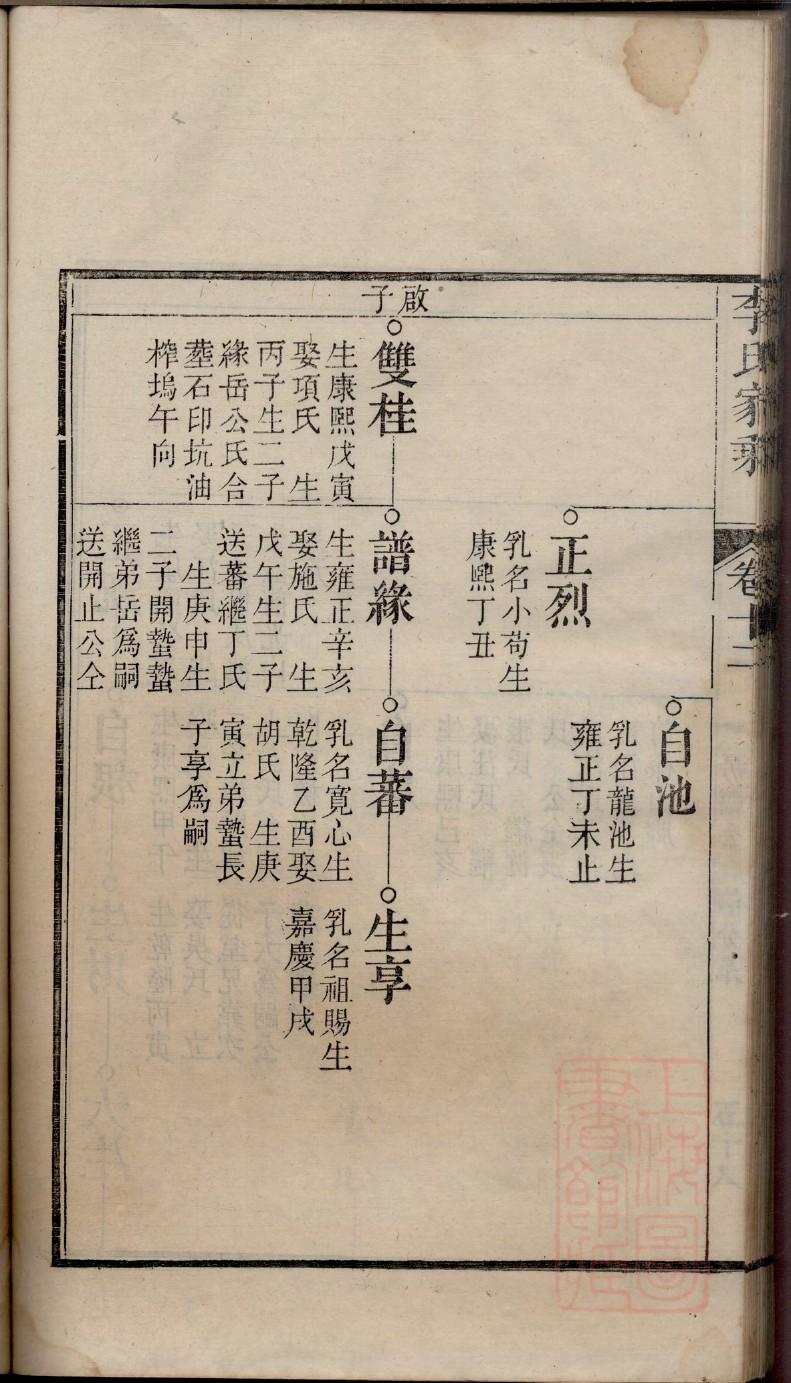 李氏家乘
卷十二
自池
乳名龍池生
雍正丁未止
正烈
乳名小苟生
康熙丁丑
啟子
雙桂
生康熙戊寅
娶項氏　生
丙子生二子
緣岳公氏合
塟石印坑油
榨塢午向
譜緣
生雍正辛亥
娶施氏　生
戊午生二子
送蕃繼丁氏
生庚申生
二子開蟄蟄
繼弟岳爲嗣
送開止公仝
自蕃
乳名寬心生
乾隆乙酉娶
胡氏　生庚
寅立弟蟄長
子享爲嗣
生享
乳名祖賜生
嘉慶甲戌
上海圖書館藏